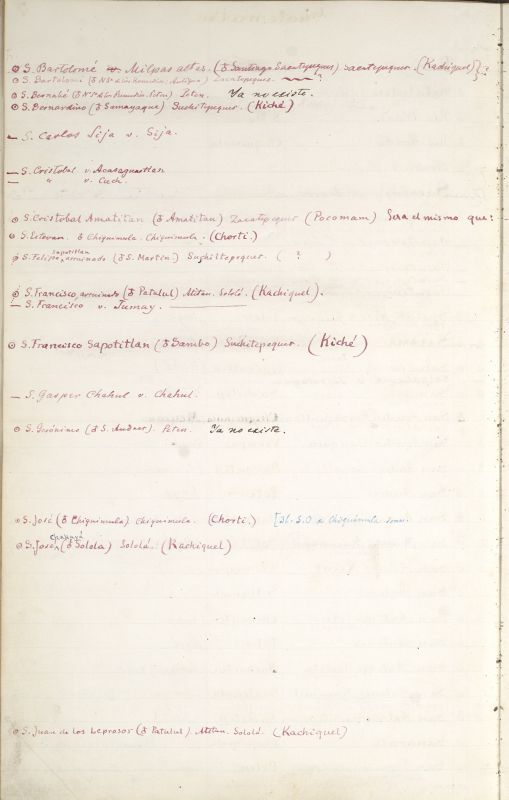 ⊙ S. Bartolomé v. Milpas altas. (♂ Santiago Sacatepeques) Sacatepequez. (Kachiquel)
⊙ S. Bartolomé (♂ Nª Sª de los Remedios, Antigua) Zacatepeques. ?
⊙ S. Bernabé (♂ Nª Sª de los Remedios. Peten) Peten. Ya no existe.
⊙ S. Bernardino (♂ Samayaque) Suchitepequez. (Kiché)
— S. Carlos Sija v. Sija.
— S. Cristobal v. Acasaguastlan
— " v. Cuch.
⊙ S. Cristobal Amatitan (♂ Amatitan) Zacatepequez (Pocomam) Sera el mismo que:
⊙ S. Estevan. ♂ Chiquimula. Chiquimula. (Chorti.)
S. Felipe Sapotitlan arruinado (♂ S. Martin) Suchiltepequez. ( ? )
S. Francisco, arruinado (♂ Patulul) Atitan. Sololá. (Kachiquel).
— S. Francisco v. Jumay.
⊙ S. Francisco Sapotitlan (♂ Sambo) Suchitepequez. (Kiché)
— S. Gasper Chahul v. Chahul.
⊙ S. Gerónimo (♂ S. Andres). Peten. Ya no existe.
⊙ S. José (♂ Chiquimula). Chiquimula. (Chorti.) S.O de Chiquimula
⊙ S. José Chakayá (♂ Solola) Sololá. (Kachiquel)
⊙ S. Juan de los Leprosos (♂ Patulul). Atitan. Sololá. (Kachiquel)